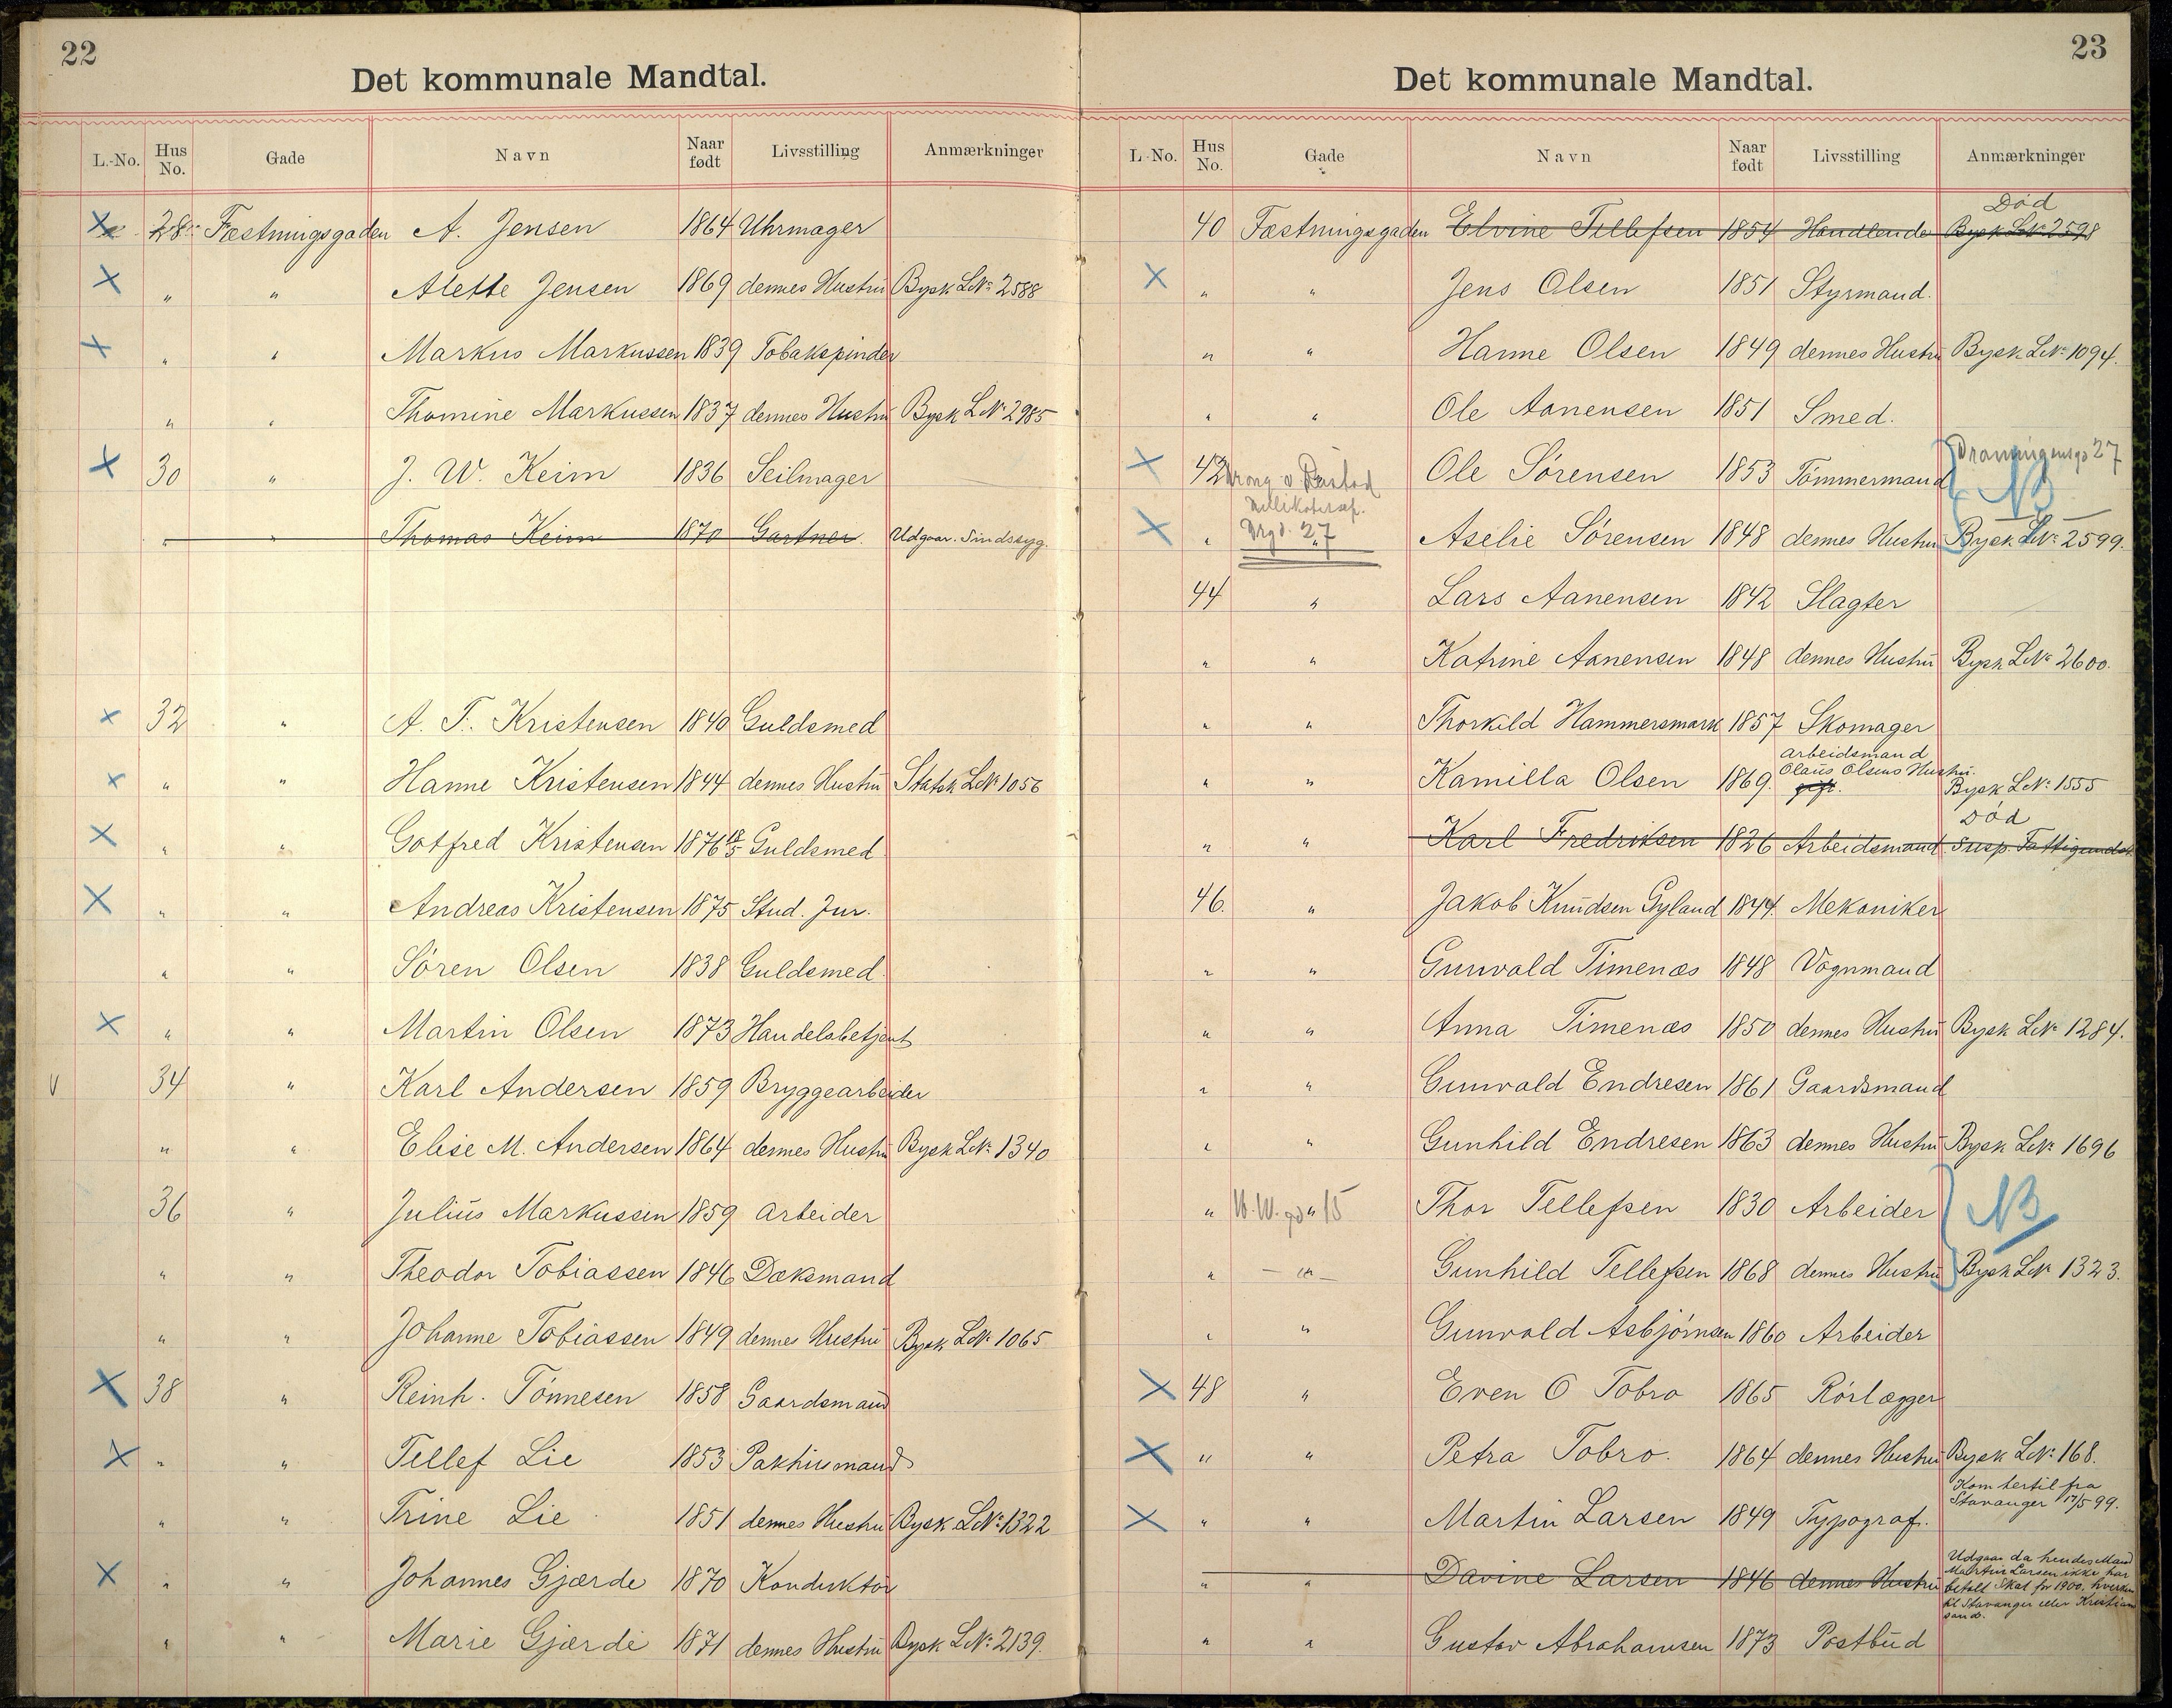 22
Det kommunale Mandtal.
L.-No. Hus No. Gade Navn Naar født Livsstilling Anmærkninger
28 Fæstningsgaden A. Jensen 1864 Uhrmager
" " Alette Jensen 1869 dennes Hustru Bysk LNr. 2588
" " Markus Markussen 1839 Tobakspinder
" " Thomine Markussen 1837 dennes Hustru Bysk LNr 2985
30 " J. W. Keim 1836 Seilmager
" " Thomas Keim 1870 Gartner. Udgaar. Sindssyg.
32 " A. T. Kristensen 1840 Guldsmed
" " Hanne Kristensen 1844 dennes Hustru Statsk LNr 1056
" " Gotfred Kristensen 1876 18/5 Guldsmed
" " Andreas Kristensen 1875 Stud. Jur.
" " Sören Olsen 1838 Guldsmed
" " Martin Olsen 1873 Handelsbetjent
V 34 " Karl Andersen 1859 Bryggearbeider
" " Elise M. Andersen 1864 dennes Hustru Bysk LNr. 1340
36 " Julius Markussen 1859 Arbeider
" " Theodor Tobiassen 1846 Dæksmand
" " Johanne Tobiassen 1849 dennes Hustru Bysk LNr. 1065
38 " Reinh. Tönnesen 1858 Gaardsmand
" " Tellef Lie 1853 Pakhusmand
" " Trine Lie 1851 dennes Hustru Bysk LNr. 1322
" " Johannes Gjærde 1870 Konduktör
" " Marie Gjærde 1871 dennes Hustru Bysk LNr. 2139.
23
Det kommunale Mandtal.
L.-No. Hus No. Gade Navn Naar født Livsstilling Anmærkninger
Död
40 Fæstningsgaden Elvine Tellefsen 1854 Handlende Bysk LNr. 2598
" " Jens Olsen 1851 Styrmand.
" " Hanne Olsen 1849 dennes Hustru Bysk LNr. 1094.
" " Ole Aanensen 1851 Smed.
Dronningensgd 27
42 Ole Sörensen 1853 Tömmermand NB
Drgd. 27
" " Aselie Sörensen 1848 dennes Hustru Bysk LNr. 2599.
44 " Lars Aanensen 1842 Slagter
" " Katrine Aanensen 1848 dennes Hustru Bysk LNr 2600.
" " Thorkild Hammersmark 1857 Skomager
Arbeidsmand
Olaus Olsens Hustru.
" " Kamilla Olsen 1869. gift. Bysk LNr. 1555
Död
" " Karl Fredriksen 1826 Arbeidsmand Susp. Fattigundst.
46. " Jakob Knudsen Gyland 1844. Mekaniker
" " Gunvald Timenæs 1848 Vognmand
" " Anna Timenæs 1850 dennes Hustru Bysk LNr 1284.
" " Gunvald Endresen 1861 Gaardsmand
" " Gunhild Endresen 1863 dennes Hustru Bysk LNr 1696
" W. W. gd " 15 Thor Tellefsen 1830 Arbeider NB
" — " — Gunhild Tellefsen 1868 dennes Hustru Bysk LNr 1323.
" " Gunvald Asbjörnsen 1860 Arbeider
48 " Even O Tobro 1865 Rörlægger
" " Petra Tobro. 1864 dennes Hustru Bysk LNr. 168.
Kom hertil fra
Stavanger 17/5 99.
" " Martin Larsen 1849 Typograf.
Udgaar da hendes Mand
Martin Larsen ikke har
" " Davine Larsen 1846 dennes Hustru betalt Skat for 1900. hverken
til Stavanger eller Kristian
sand.
" " Gustav Abrahamsen 1873 Postbud